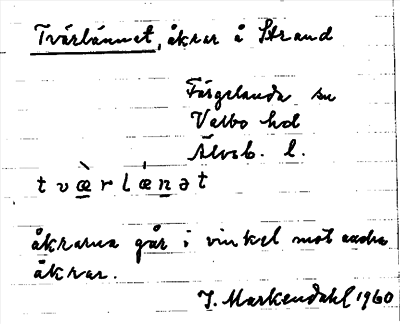 Tvärlännet, åkrar å Strand
Färgelanda sn
Valbo hd
Älvsb. l.
tvæ̀rlǽnət
åkrarna går i vinkel mot andra
åkrar.
J. Markendahl 1960